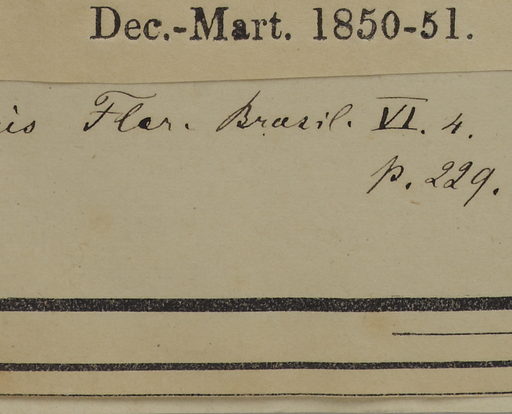 Dec.-Mart. 1850-51.
Flor. Brasil. VI. 4.
p. 229.